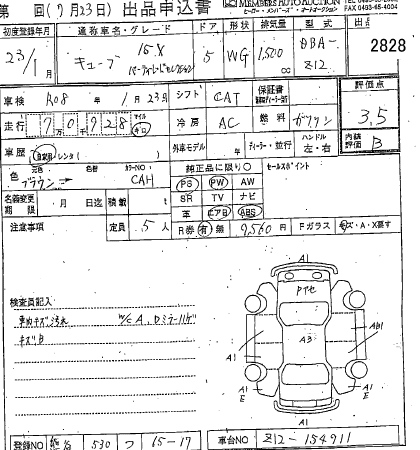 第 回(7月23日) 出品申込書
MEMBERS AUTO AUCTION
FAX 0493-45-4004
初度登録年月 通称車名・グレード ドア 形状 排気量 型式 出品
23/1 キューブ 15-X 5 WG 1,500 cc DBA-Z12 2828
車検 R08年 1月23日 シフト CAT 保証書 評価点
走行 7万0千928 マイル キロ 冷房 AC 燃料 ガソリン 3.5
車歴 自家用 レンタ( ) 外車モデル 年 ディーラー・並行 ハンドル 左・右 内装評価 B
色 元色 ブラウン 色替 カラーNO CAH 純正品に限り○ セールスポイント
PS PW AW
名義変更期限 月 日迄 積載 t SR TV ナビ
革 エアB ABS
注意事項 定員 5人 R券 有 無 9,560円 Fガラス キズ・A・X要す
検査員記入
車内キズ汚れ W/C A、Dミラーハゲ
キズ自
A1
Pヤセ
A3
A1 AB1
A1 E A1 E
A1
登録NO 530 つ 15-17 車台NO Z12-154911